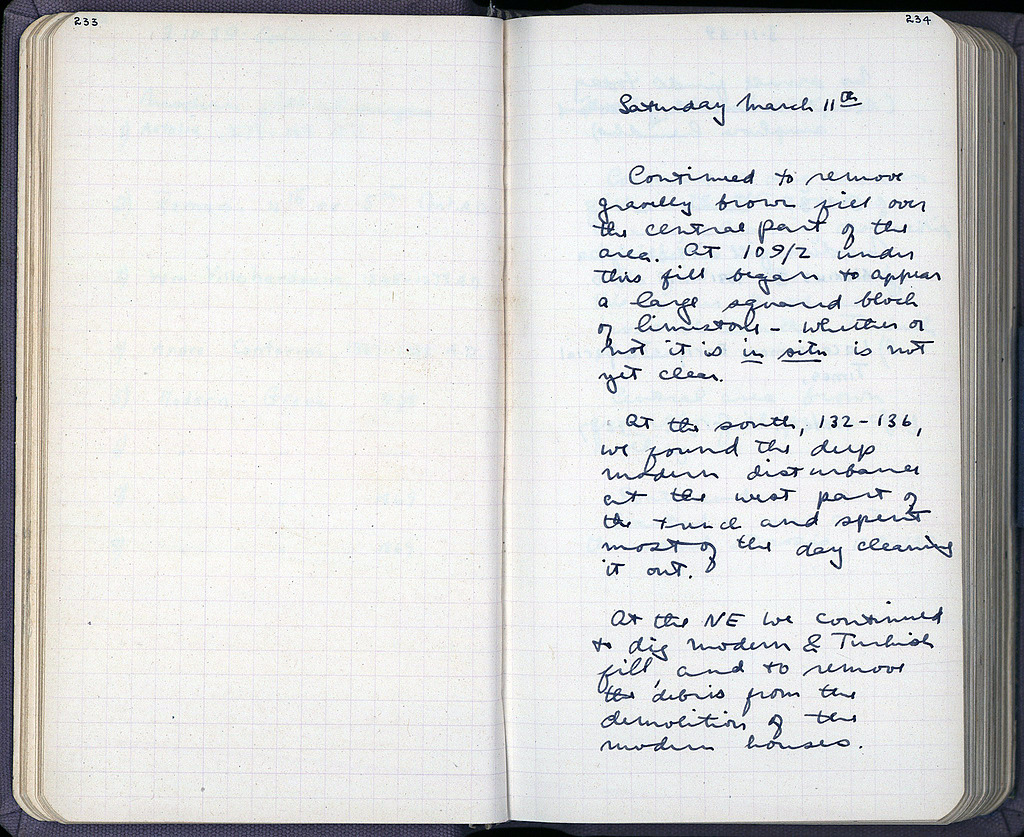 233
234
Saturday March 11th
Continued to remove
gravelly brown fill over
the central part of the
area. At 109/2 under
this fill began to appear
a large squared block
of limestone - whether or
not it is in situ is not
yet clear.
At the south, 132-136,
we found the deep
modern disturbance
at the west part of
the trench and spent
most of the day cleaning
it out.
At the NE we continued
to dig modern & Turkish
fill, and to remove
the debris from the
demolition of the
modern houses.